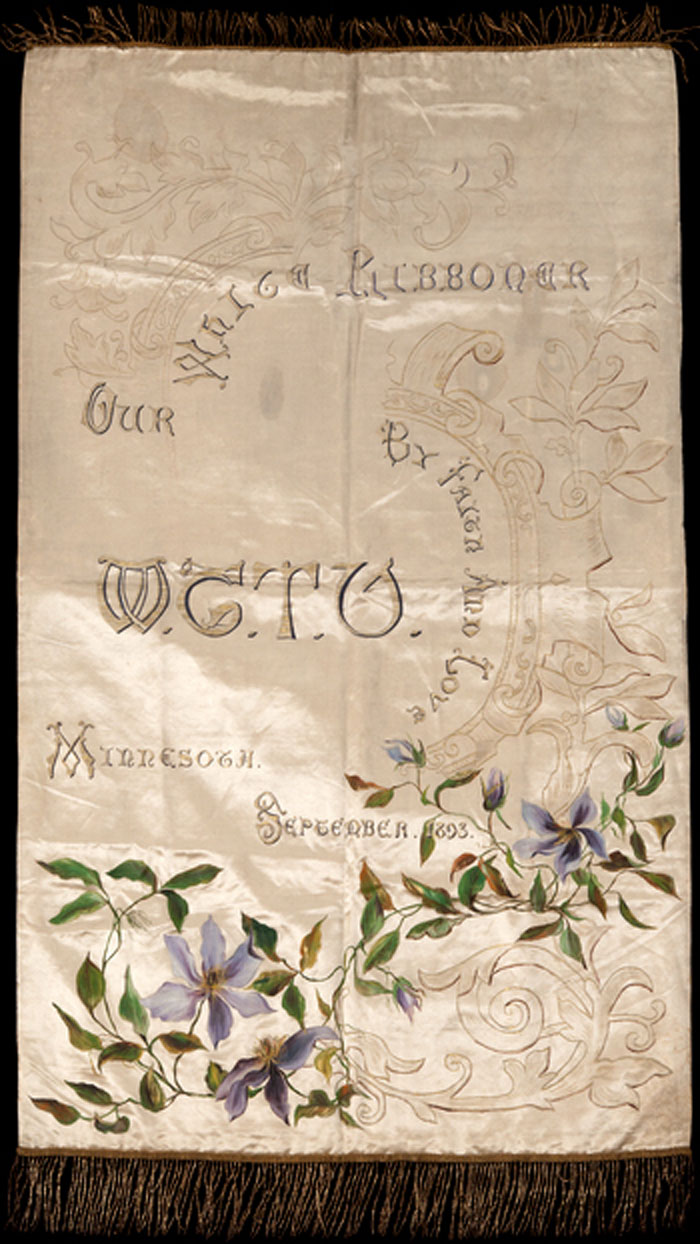 Our White Ribboner
By Faith And Love
W.C.T.U.
Minnesota.
September. 1893.